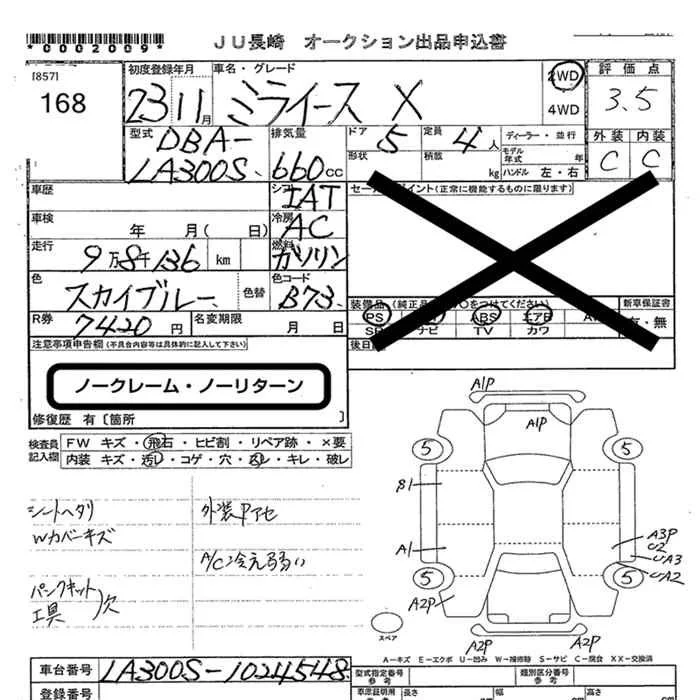 *0002009*
JU長崎 オークション出品申込書
[857]
168
初度登録年月
23 11月
車名・グレード
ミライース X
2WD
4WD
評価点
3.5
外装 内装
C C
型式
DBA-
LA300S
排気量
660 CC
ドア
5
定員
4人
形状
積載
kg
ディーラー・並行
モデル年式 年
ハンドル 左・右
車歴
シフト
IAT
車検
年 月( 日)
冷房
AC
走行
9万8千136 km
燃料
ガソリン
色
スカイブルー
色替
色コード
B73
R券
7420円
名変期限
月 日
セールスポイント(正常に機能するものに限ります)
装備品(純正品
○をつけてください)
PS
ABS
エアB
ナビ
TV
カワ
新車保証書
有・無
後日
注意事項申告欄(不具合内容等は具体的に記入して下さい)
ノークレーム・ノーリターン
修復歴 有〔箇所 〕
検査員記入欄
FW キズ・飛石・ヒビ割・リペア跡・×要
内装 キズ・汚レ・コゲ・穴・スレ・キレ・破レ
シートヘタリ
Wカバーキズ
パンクキット
工具
欠
外装クアセ
A/C冷え弱い
A1P
A1P
5
5
B1
A1
A3P
U2
UA3
UA2
5
5
A2P
A2P
A2P
スペア
A-キズ E-エクボ U-凹み W-補修跡 S-サビ C-腐食 XX-交換済
車台番号
LA300S-1024548
登録番号
型式指定番号
参考
類別区分番号
参考
車庫証明用
長さ
幅
高さ